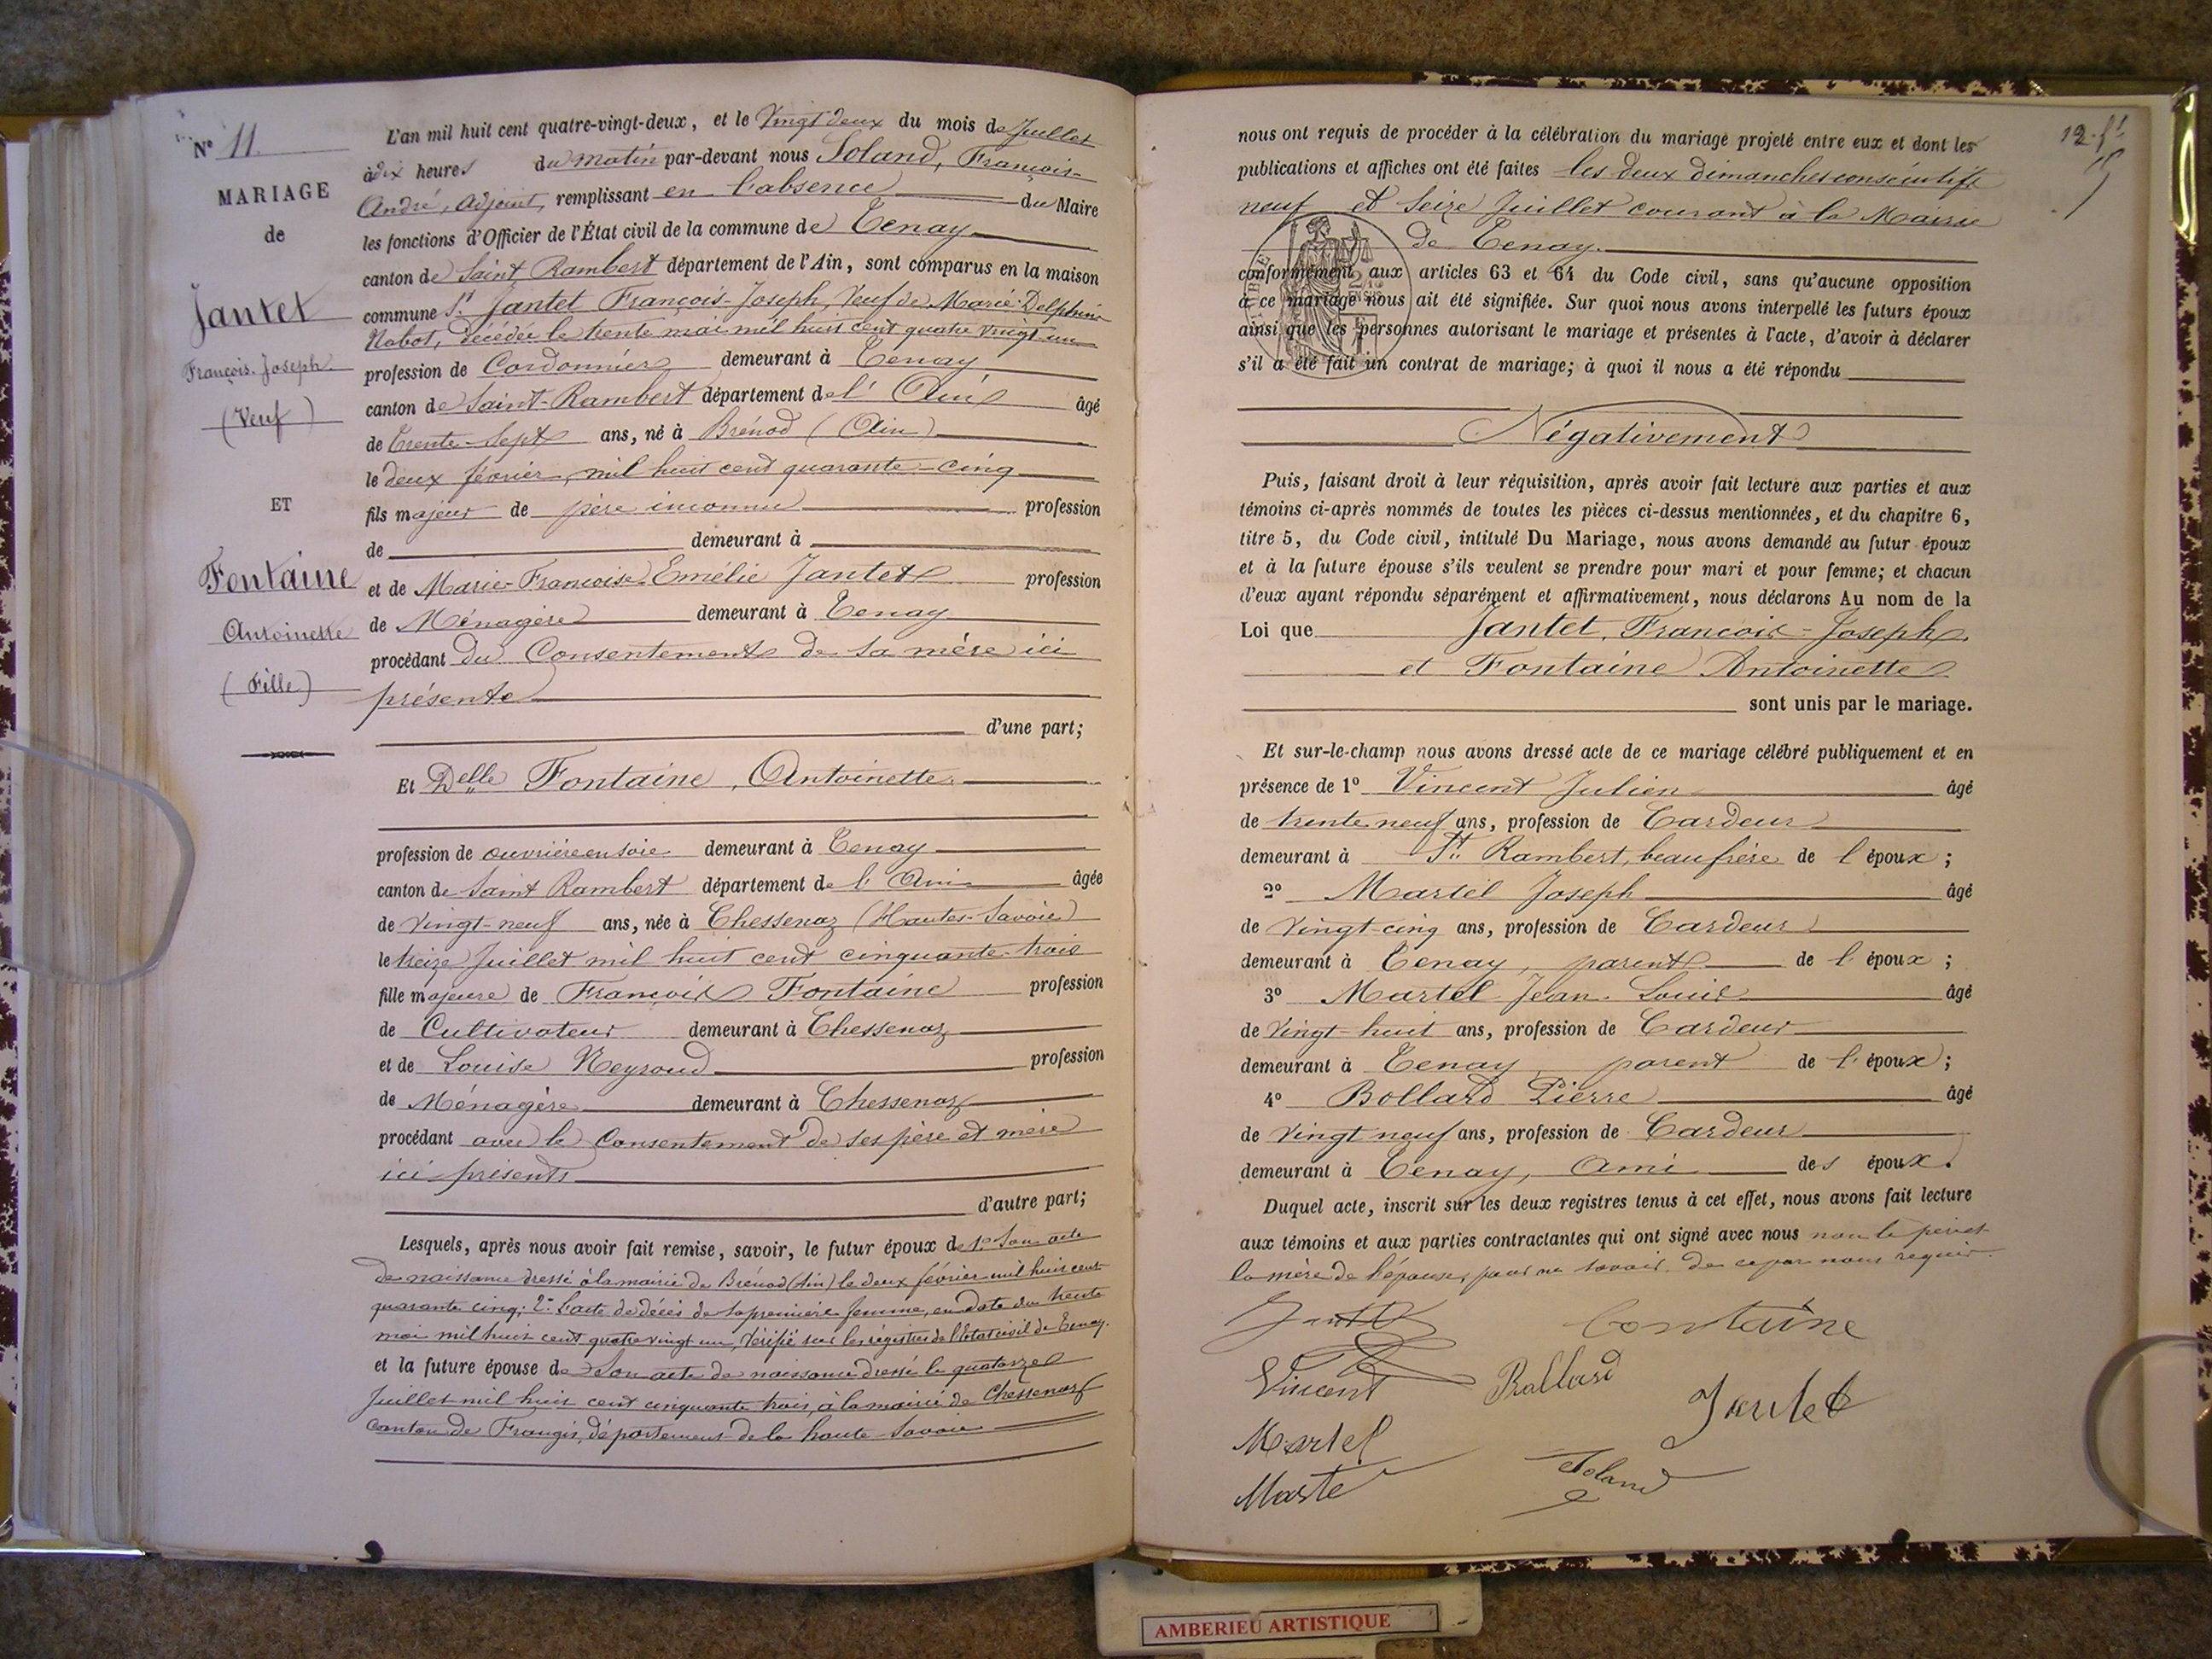 N° 11.
MARIAGE
de
Jantet
François-Joseph
(Veuf)
ET
Fontaine
Antoinette
(Fille)
L'an mil huit cent quatre-vingt-deux, et le Vingt deux du mois de Juillet
à dix heures du matin par-devant nous Soland, François-
André, adjoint, remplissant en l'absence du Maire
les fonctions d'Officier de l'État civil de la commune de Tenay
canton de Saint Rambert département de l'Ain, sont comparus en la maison
commune Sr Jantet François-Joseph, Veuf de Marie-Delphine
décédée le trente mai mil huit cent quatre vingt un
profession de Cordonnier demeurant à Tenay
canton de Saint-Rambert département de l'Ain âgé
de Trente-Sept ans, né à Brénod (Ain)
le deux février, mil huit cent quarante-cinq
fils majeur de père inconnu profession
de demeurant à
et de Marie-Françoise-Emélie Jantet profession
de Ménagère demeurant à Tenay
procédant du Consentement de sa mère ici
présente
d'une part;
Et Delle Fontaine, Antoinette
profession de ouvrière en soie demeurant à Tenay
canton de Saint Rambert département de l'Ain âgée
de Vingt-neuf ans, née à Chessenaz (Hautes-Savoie)
le treize Juillet mil huit cent cinquante-trois
fille majeure de François Fontaine profession
de Cultivateur demeurant à Chessenaz
et de Louise Neyroud profession
de Ménagère demeurant à Chessenaz
procédant avec le Consentement de ses père et mère
ici présents
d'autre part;
Lesquels, après nous avoir fait remise, savoir, le futur époux de 1° Son acte
de naissance dressé à la mairie de Brénod (Ain) le deux février mil huit cent
quarante cinq; 2° l'acte de décès de sa première femme, en date du trente
mai mil huit cent quatre vingt un, Vérifié sur les régistres de l'Etat civil de Tenay.
et la future épouse de Son acte de naissance dressé le quatorze
Juillet mil huit cent cinquante trois, à la mairie de Chessenaz
canton de Frangis, département de la haute Savoie
12. ft
nous ont requis de procéder à la célébration du mariage projeté entre eux et dont les
publications et affiches ont été faites les deux dimanches consécutifs
neuf et Seize Juillet courant à la Mairie
de Tenay.
conformément aux articles 63 et 64 du Code civil, sans qu'aucune opposition
à ce mariage nous ait été signifiée. Sur quoi nous avons interpellé les futurs époux
ainsi que les personnes autorisant le mariage et présentes à l'acte, d'avoir à déclarer
s'il a été fait un contrat de mariage; à quoi il nous a été répondu
Négativement
Puis, faisant droit à leur réquisition, après avoir fait lecture aux parties et aux
témoins ci-après nommés de toutes les pièces ci-dessus mentionnées, et du chapitre 6,
titre 5, du Code civil, intitulé Du Mariage, nous avons demandé au futur époux
et à la future épouse s'ils veulent se prendre pour mari et pour femme; et chacun
d'eux ayant répondu séparément et affirmativement, nous déclarons Au nom de la
Loi que Jantet, François-Joseph
et Fontaine Antoinette
sont unis par le mariage.
Et sur-le-champ nous avons dressé acte de ce mariage célébré publiquement et en
présence de 1° Vincent Julien âgé
de trente neuf ans, profession de Cardeur
demeurant à St Rambert, beau frère de l'époux;
2° Martel Joseph âgé
de Vingt-cinq ans, profession de Cardeur
demeurant à Tenay, parent de l'époux;
3° Martel Jean-Louis âgé
de Vingt-huit ans, profession de Cardeur
demeurant à Tenay parent de l'époux;
4° Bollard Pierre âgé
de Vingt neuf ans, profession de Cardeur
demeurant à Tenay, Ami des époux.
Duquel acte, inscrit sur les deux registres tenus à cet effet, nous avons fait lecture
aux témoins et aux parties contractantes qui ont signé avec nous non le père et
la mère de l'épouse, pour ne savoir. de ce par nous requis.
Fontaine
Vincent Bollard
Jantet
Martel
Soland
AMBERIEU ARTISTIQUE